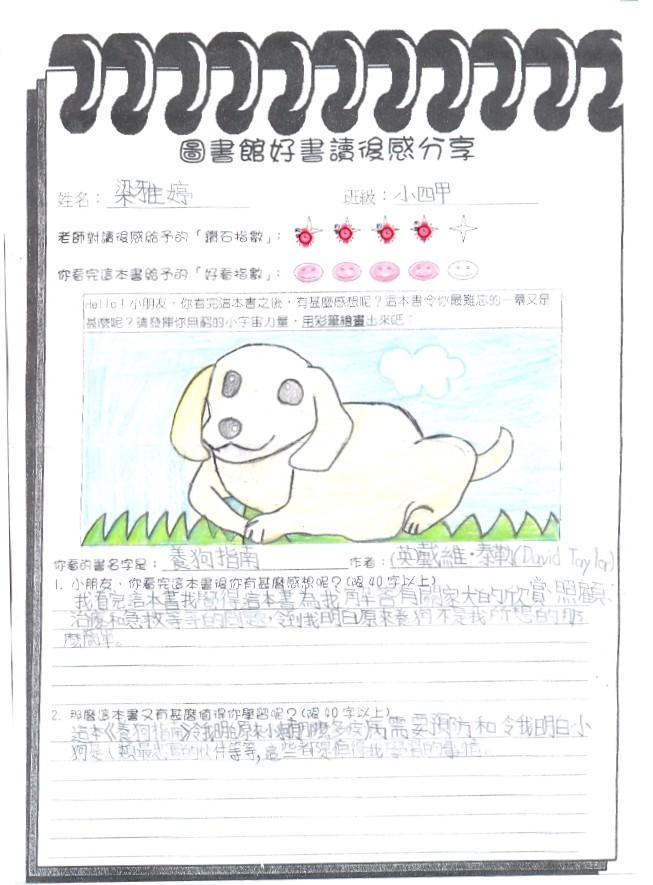 圖書館好書讀後感分享
姓名：梁雅婷 班級：小四甲
老師對讀後感給予的「鑽石指數」：
你看完這本書給予的「好看指數」：
Hello！小朋友，你看完這本書之後，有甚麼感想呢？這本書令你最難忘的一幕又是
甚麼呢？請發揮你無窮的小宇宙力量，用彩筆繪畫出來吧！
你看的書名字是：養狗指南 作者：(英戴維·泰勒(David Taylor)
1. 小朋友，你看完這本書後你有甚麼感想呢？(限40字以上)
我看完這本書我覺得這本書為我解答各有關家犬的欣賞、照顧、
治療和急救等等的問題，令到我明白原來養狗不是我所想的那
麼簡單。
2. 那麼這本書又有甚麼值得你學習呢？(限40字以上)
這本《養狗指南》令我明白原來小狗有那麼多疾病需要預防和令我明白小
狗是人類最忠實的伙伴等等，這些都是值得我學習的事情。